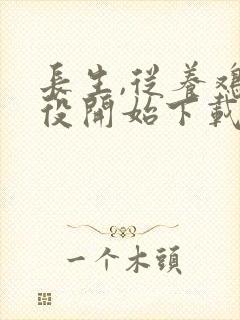 長生,從養雞
役開始下載
一个木頭